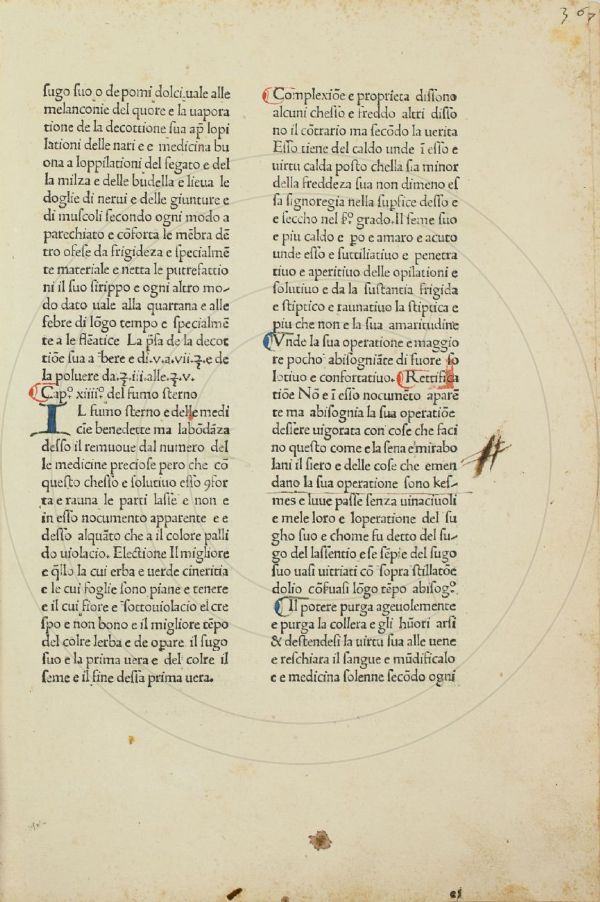 367
sugo suo o de pomi dolci uale alle
melanconie del quore e la uapora
tione de la decottione sua ap̄ lopi
lationi delle nari e e medicina bu
ona a loppilationi del fegato e del
la milza e delle budella e lieua le
doglie di nerui e delle giunture e
di muscoli secondo ogni modo a
parechiato e cōforta le mēbra dē
tro ofese da frigideza e specialmē
te materiale e netta le putrefattio
ni il suo sirippo e ogni altro mo-
do dato uale alla quartana e alle
febre di lōgo tempo e specialmē
te a le flēatice La p̄sa de la decot
tiōe sua a bere e di.v.a.vii.ʒ.e de
la poluere da.ʒ.iii.alle.ʒ.v.
Capº xiiiiº del fumo sterno
IL fumo sterno e delle medi
cie benedette ma labōdāza
desso il remuoue dal numero del
le medicine preciose pero che cō
questo chesso e solutiuo esso ꝯfor
ta e rauna le parti lasse e non e
in esso nocumento apparente e e
desso alquāto che a il colore palli
do uiolacio. Electione Il migliore
e q̄llo la cui erba e uerde cineritia
e le cui foglie sono piane e tenere
e il cui fiore e sottouiolacio el cre
spo e non bono e il migliore tēpo
del colre lerba e de opare il sugo
suo e la prima uera e del colre il
seme e il fine dessa prima uera.
Complexiōe e proprieta dissono
alcuni chesso e freddo altri disso
no il cōtrario ma secōdo la uerita
Esso tiene del caldo unde ī esso e
uirtu calda posto chella sia minor
della freddeza sua non dimeno es
sa signoregia nella supfice desso e
e seccho nel sº grado.Il seme suo
e piu caldo e po e amaro e acuto
unde esso e suttiliatiuo e penetra
tiuo e aperitiuo delle opilationi e
solutiuo e da la sustantia frigida
e stiptico e raunatiuo la stiptica e
piu che non e la sua amaritudine
Vnde la sua operatione e maggio
re pocho abisognāte di fuore so
lotiuo e confortatiuo. Rettifica
tiōe Nō e ī esso nocumēto aparē
te ma abisognia la sua operatiōe
dessere uigorata con cose che faci
no questo come e la sena e mirabo
lani il siero e delle cose che emen
dano la sua operatione sono kes-
mes e luue passe senza uinaciuoli
e mele loro e loperatione del su
gho suo e chome fu detto del su-
go del lassentio e se sēpie del sugo
suo uasi uitriati cō sopra stillatōe
dolio cōfuasi lōgo tēpo abisogº
Il potere purga ageuolemente
e purga la collera e gli hūori arsi
& destendesi la uirtu sua alle uene
e reschiara il sangue e mūdificalo
e e medicina solenne secōdo ogni